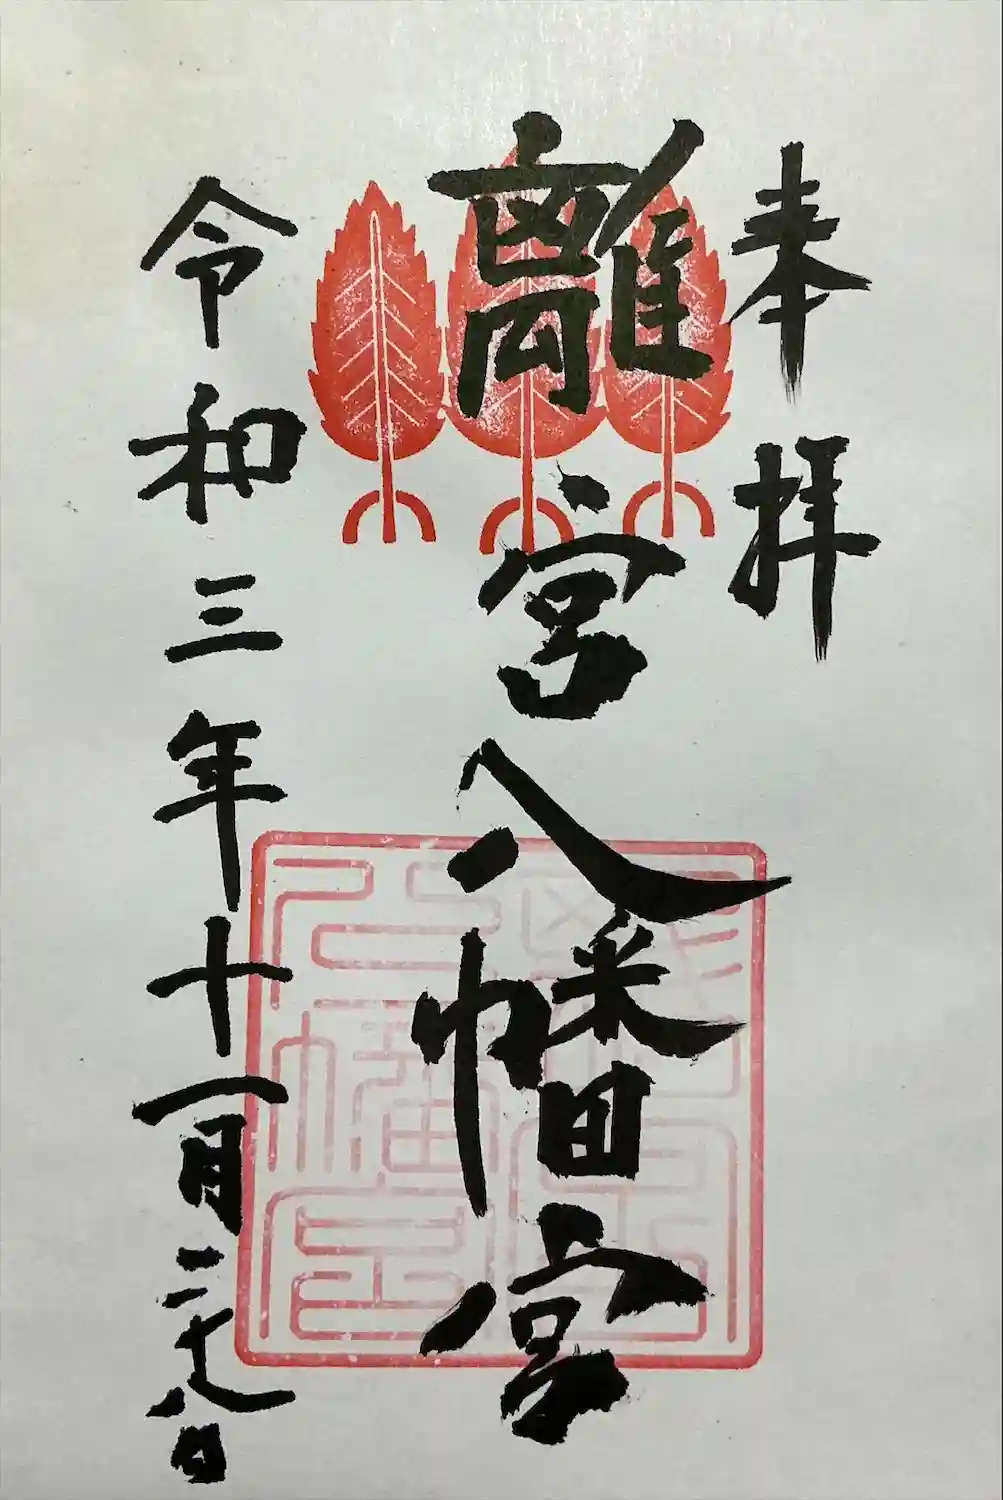 奉拝
離宮八幡宮
令和三年十一月二十八日